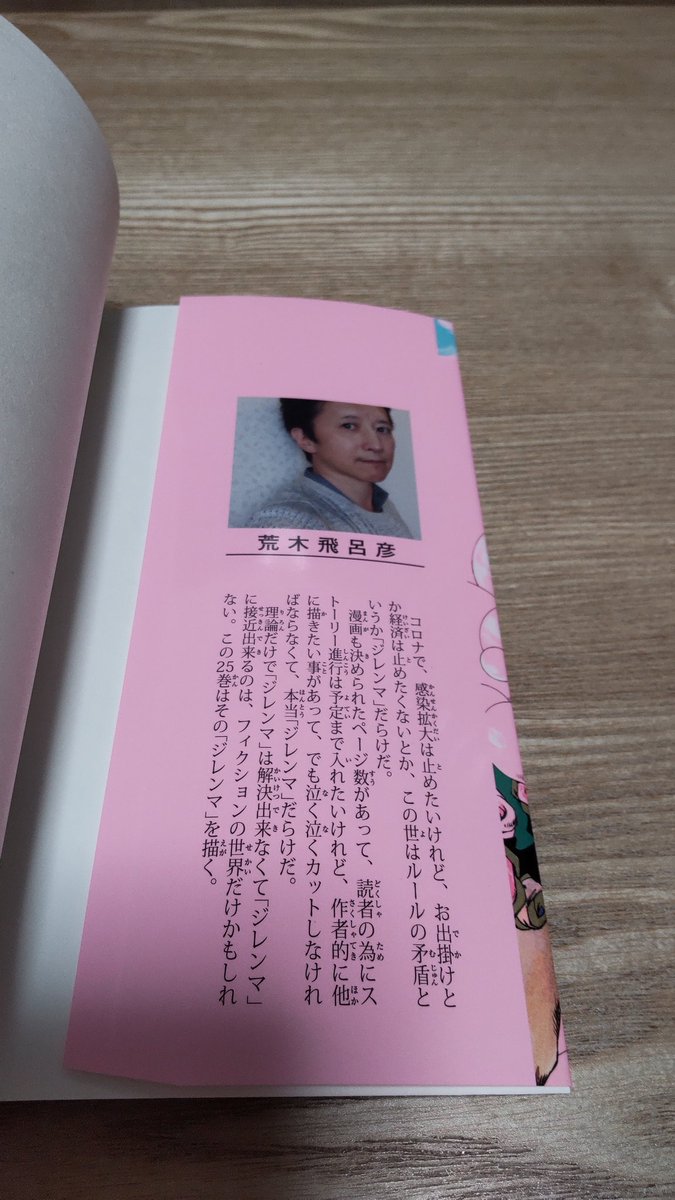 荒木飛呂彦
コロナで、感染拡大は止めたいけれど、お出掛けと
か経済は止めたくないとか、この世はルールの矛盾と
いうか「ジレンマ」だらけだ。
漫画も決められたページ数があって、読者の為にス
トーリー進行は予定まで入れたいけれど、作者的に他
に描きたい事があって、でも泣く泣くカットしなけれ
ばならなくて、本当「ジレンマ」だらけだ。
理論だけで「ジレンマ」は解決出来なくて「ジレンマ」
に接近出来るのは、フィクションの世界だけかもしれ
ない。この25巻はその「ジレンマ」を描く。